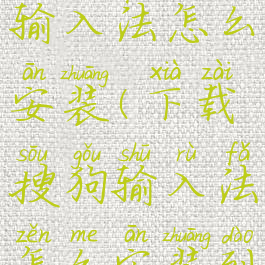 输入法怎么
ān zhuāng xià zài
安装(下载
sōu gǒu shū rù fǎ
搜狗输入法
zěn me ān zhuāng dào
怎么安装到